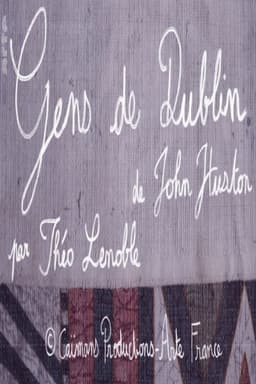 Gens de Dublin
de John Huston
par Théo Lenoble
© Caïmans Productions-Arte France